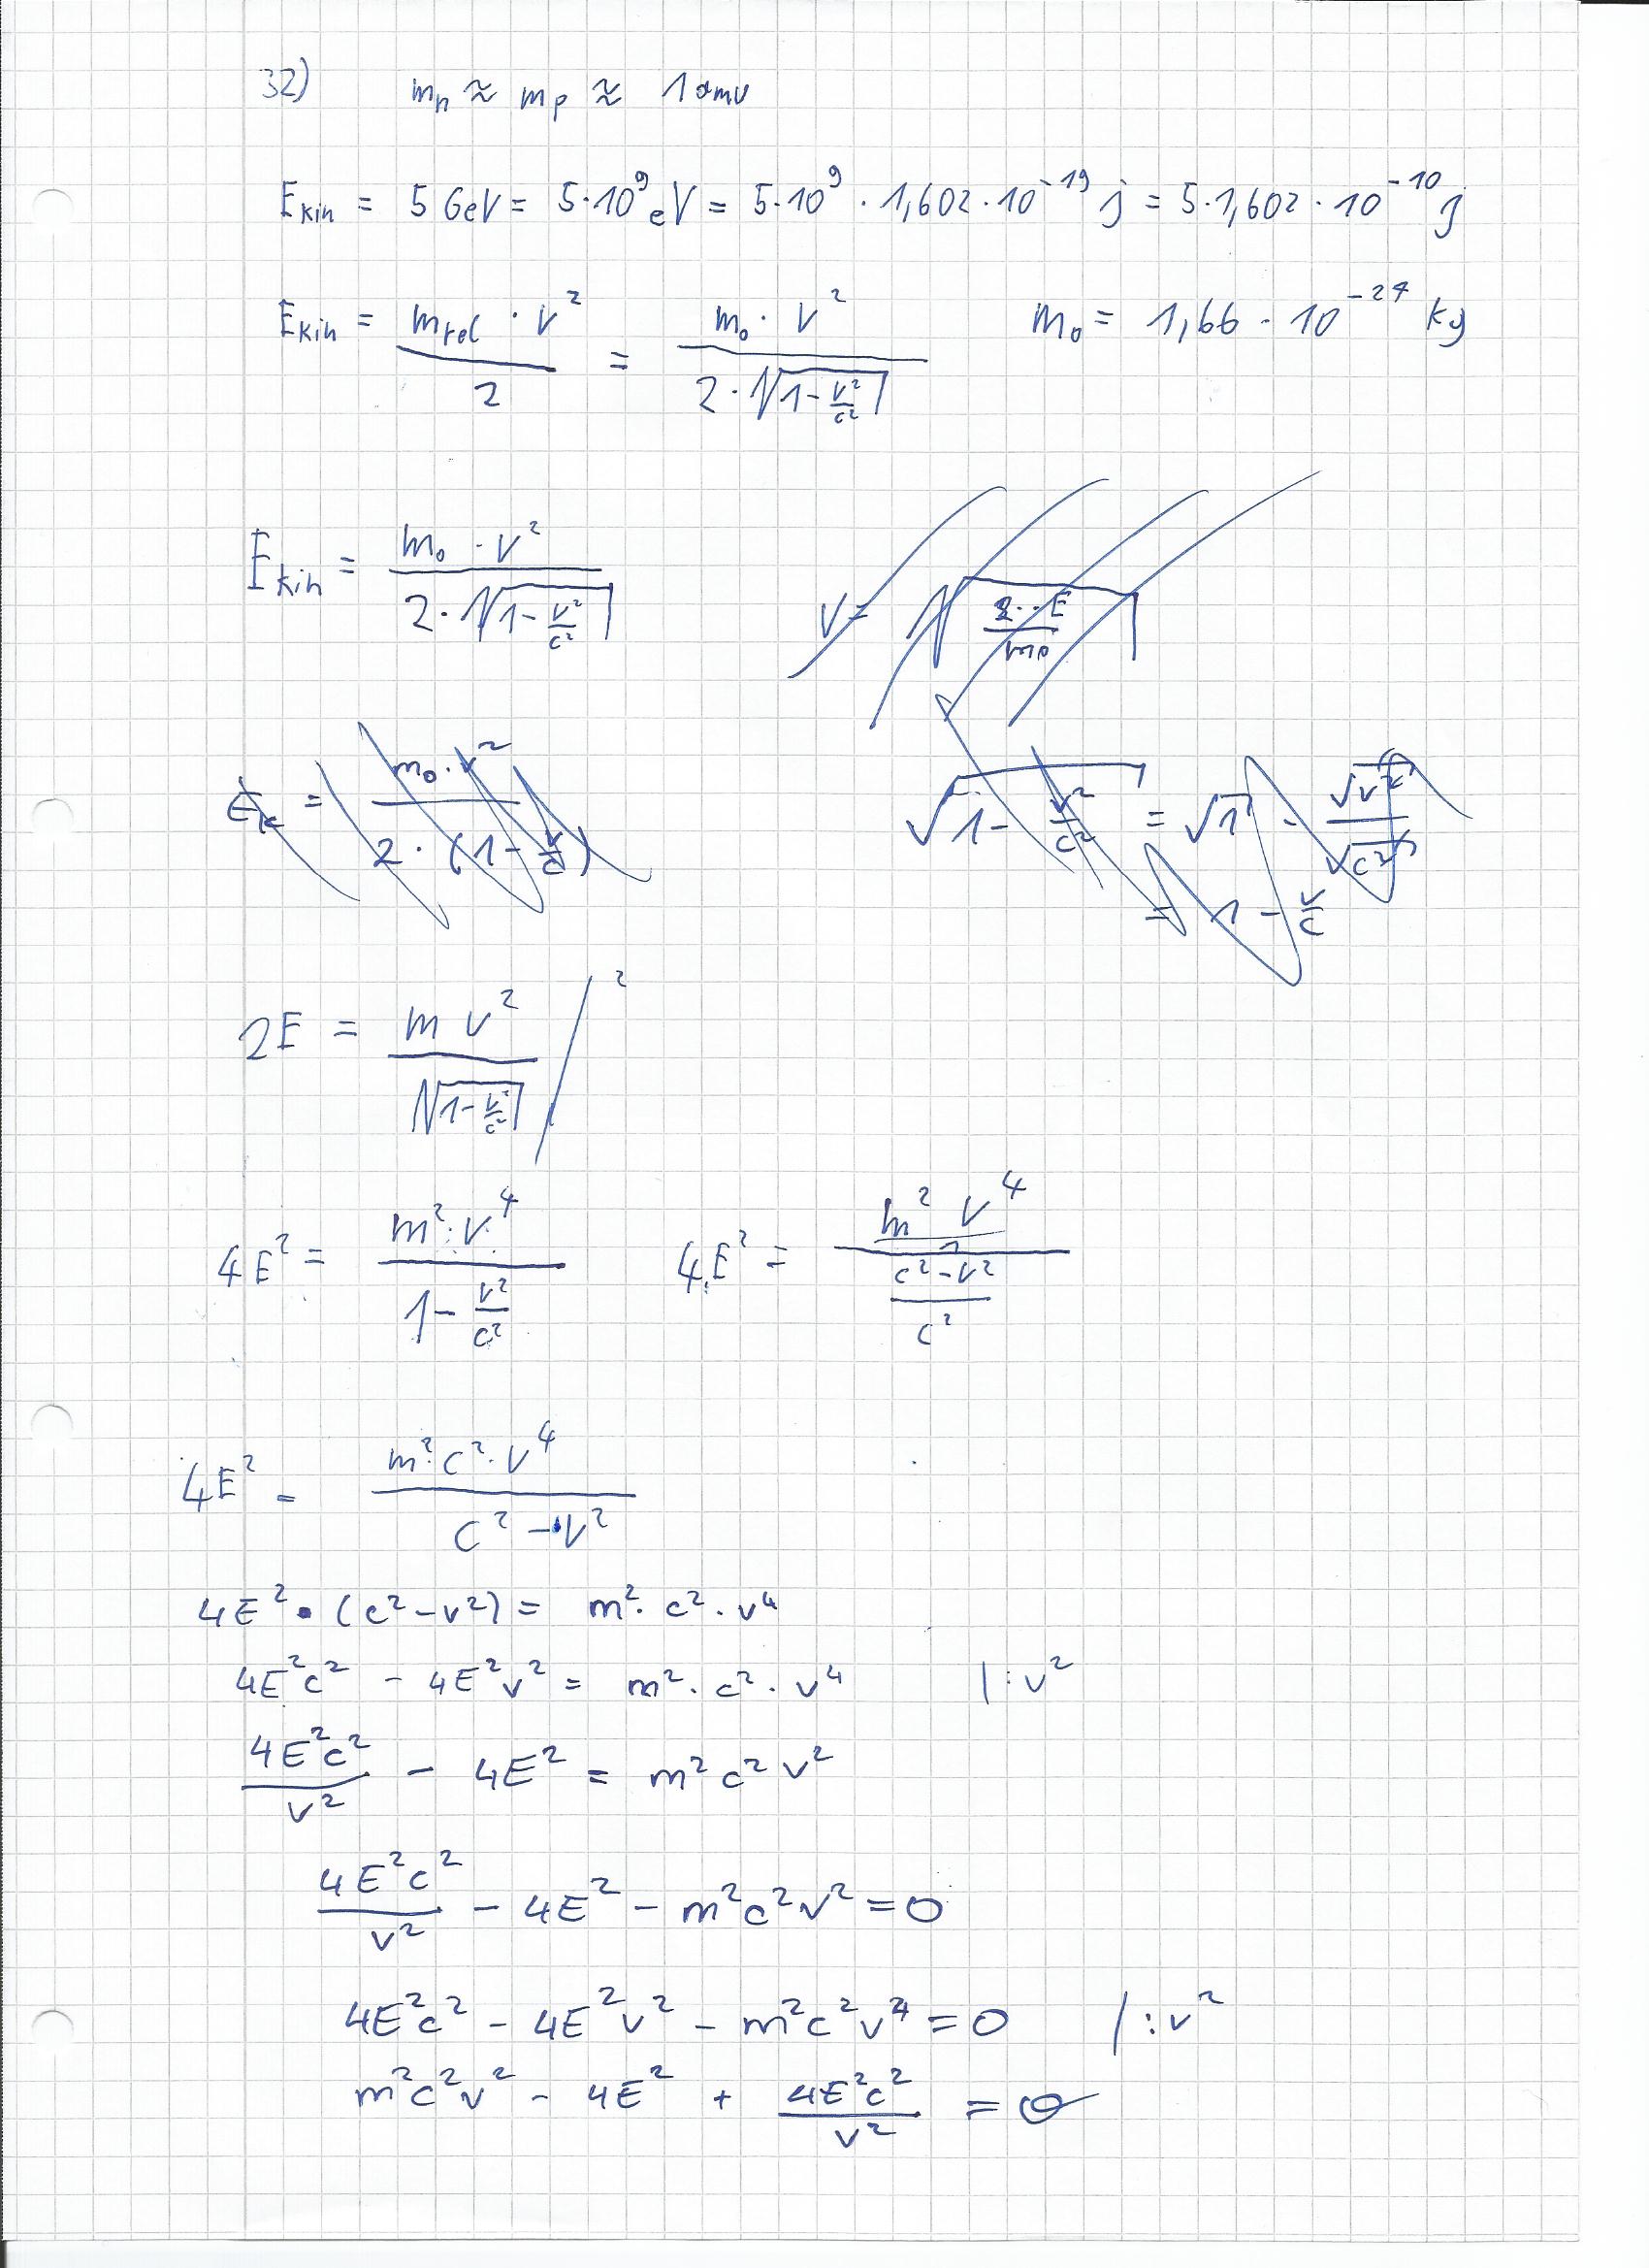 32) mₙ ≈ mₚ ≈ 1 amu
E_kin = 5 GeV = 5·10⁹ eV = 5·10⁹ · 1,602·10⁻¹⁹ j = 5·1,602·10⁻¹⁰ j
E_kin = (m_rel · v²)/2 = (m₀ · v²)/(2·√(1-v²/c²)) m₀ = 1,66 · 10⁻²⁷ kg
E_kin = (m₀ · v²)/(2·√(1-v²/c²)) v = √(2··E/m₀)
E_k = (m₀ · v²)/(2·(1-v/c)) √(1-v²/c²) = √1 - √v²/√c²
= 1 - v/c
2E = (m v²)/√(1-v²/c²) /²
4E² = (m²·v⁴)/(1-v²/c²) 4E² = (m² v⁴/1)/((c²-v²)/c²)
4E² = (m²·c²·v⁴)/(c²-v²)
4E²·(c²-v²) = m²·c²·v⁴
4E²c² - 4E²v² = m²·c²·v⁴ |:v²
4E²c²/v² - 4E² = m²c²v²
4E²c²/v² - 4E² - m²c²v² = 0
4E²c² - 4E²v² - m²c²v⁴ = 0 /:v²
m²c²v² - 4E² + 4E²c²/v² = 0